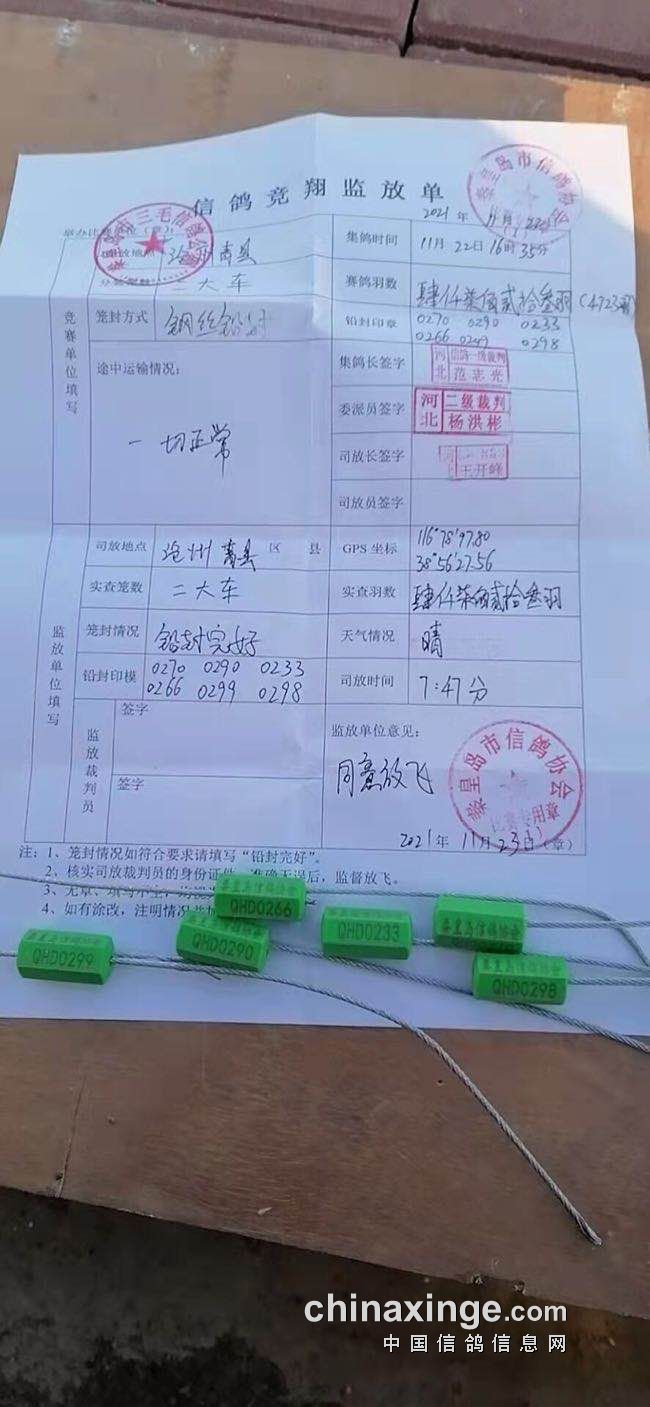 信鸽竞翔监放单
秦皇岛市信鸽协会
2021年11月22日
三毛信鸽
沧州 青县
集鸽时间 11月22日16时35分
二大车
赛鸽羽数 肆仟柒佰贰拾叁羽(4723羽)
竞赛单位填写
笼封方式 钢丝铅封
铅封印章 0270 0290 0233
0266 0298
途中运输情况:
一切正常
集鸽长签字 河北 信鸽一级裁判 范志光
委派员签字 河北 二级裁判 杨洪彬
司放长签字 王开峰
司放员签字
监放单位填写
司放地点 沧州 青县 区 县
GPS 坐标 116°78'97.80
38°56'27.56
实查笼数 二大车
实查羽数 肆仟柒佰贰拾叁羽
笼封情况 铅封完好
天气情况 晴
铅封印模 0270 0290 0233
0266 0299 0298
司放时间 7:47分
监放裁判员
签字
签字
监放单位意见:
同意放飞
秦皇岛市信鸽协会
2021年11月23日(章)
注:1、笼封情况如符合要求请填写“铅封完好”。
2、核实司放裁判员的身份证件,准确无误后,监督放飞。
3、无章、填写不全、
4、如有涂改,注明情况并
QHD0266
QHD0290
QHD0233
秦皇岛信鸽协会
QHD0299
秦皇岛信鸽协会
QHD0298
chinaxinge.com
中国信鸽信息网